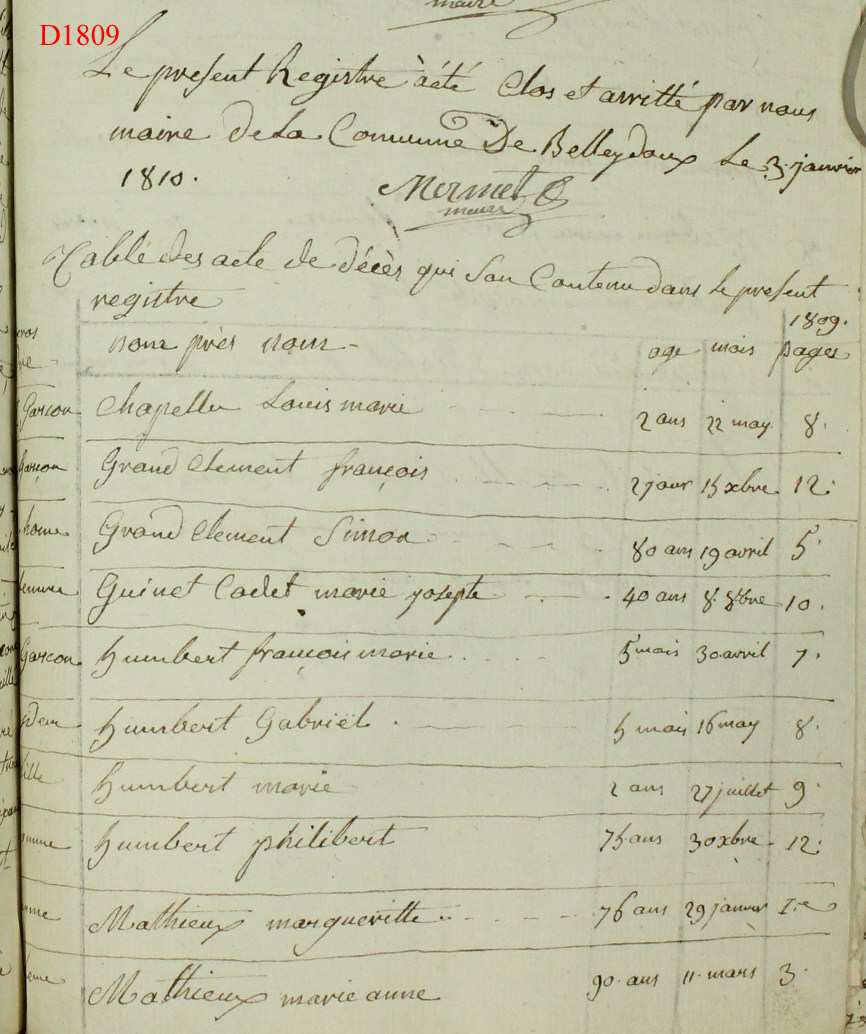 maire
D1809
Le present Registre à été Clos et arritté par nous
maire De La Commune De Belleydoux Le 3. janvier
1810.
Mermet
maire
Table des acte de décès qui Son Contenu dans le present
registre
1809.
nom près nom - age mois pages
Garcon Chapellu Louis marie 2 ans 22 may. 8.
Garcon Grand Clement françois 2 jour 15 xbre 12.
home Grand Clement Simon 80 ans 19 avril 5.
femme Guinet Cadet marie josepte 40 ans 8. 8bre 10.
Garcon humbert françois marie 5 mois 30 avril 7.
humbert Gabriël 5 mois 16 may 8.
fille humbert marie 2 ans 27 juillet 9.
humbert philibert 75 ans 30 xbre 12.
Mathieux margueritte 76 ans 29 janvier 1.re
Mathieux marie anne 90 ans 11. mars 3.